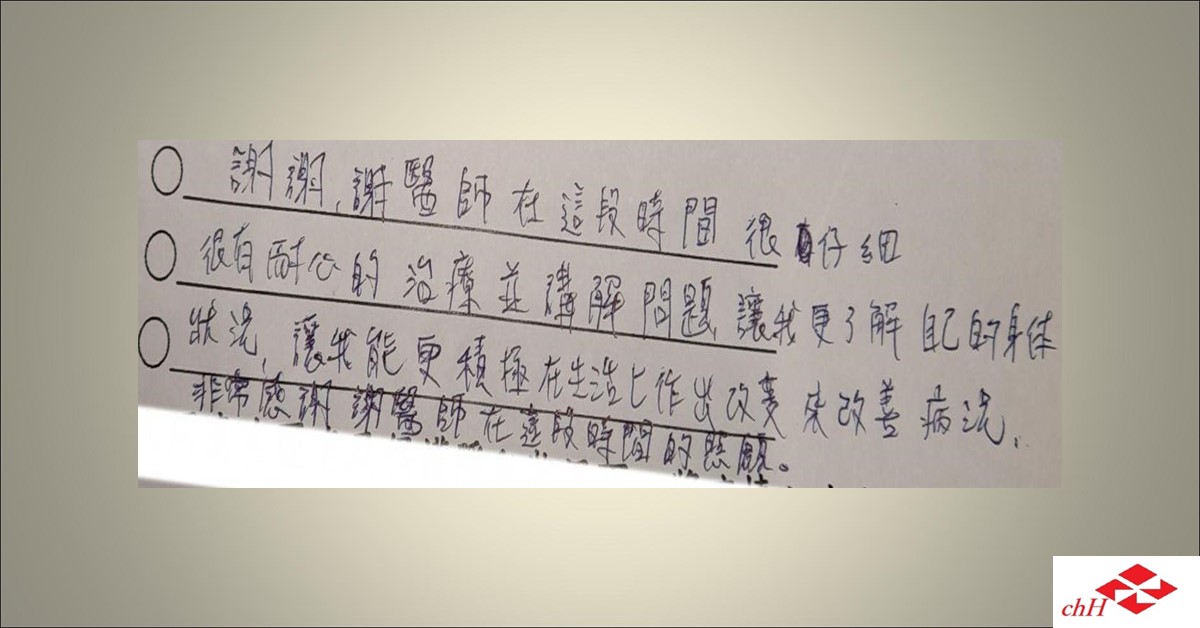 謝謝,謝醫師在這段時間很仔細
很有耐心的治療並講解問題讓我更了解自己的身体
狀況,讓我能更積極在生活上作出改變來改善病況、
非常感謝謝醫師在這段時間的照顧。
chH